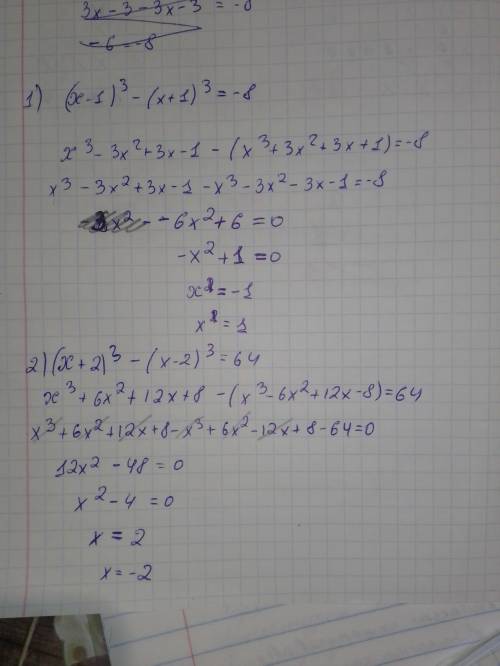 3x - 3 - 3x - 3 = -8
-6 = -8
1) (x-1)³ - (x+1)³ = -8
x³ - 3x² + 3x - 1 - (x³ + 3x² + 3x + 1) = -8
x³ - 3x² + 3x - 1 - x³ - 3x² - 3x - 1 = -8
-6x² + 6 = 0
-x² + 1 = 0
= -1
= 1
2) (x+2)³ - (x-2)³ = 64
x³ + 6x² + 12x + 8 - (x³ - 6x² + 12x - 8) = 64
x³ + 6x² + 12x + 8 - x³ + 6x² - 12x + 8 - 64 = 0
12x² - 48 = 0
x² - 4 = 0
x = 2
x = -2